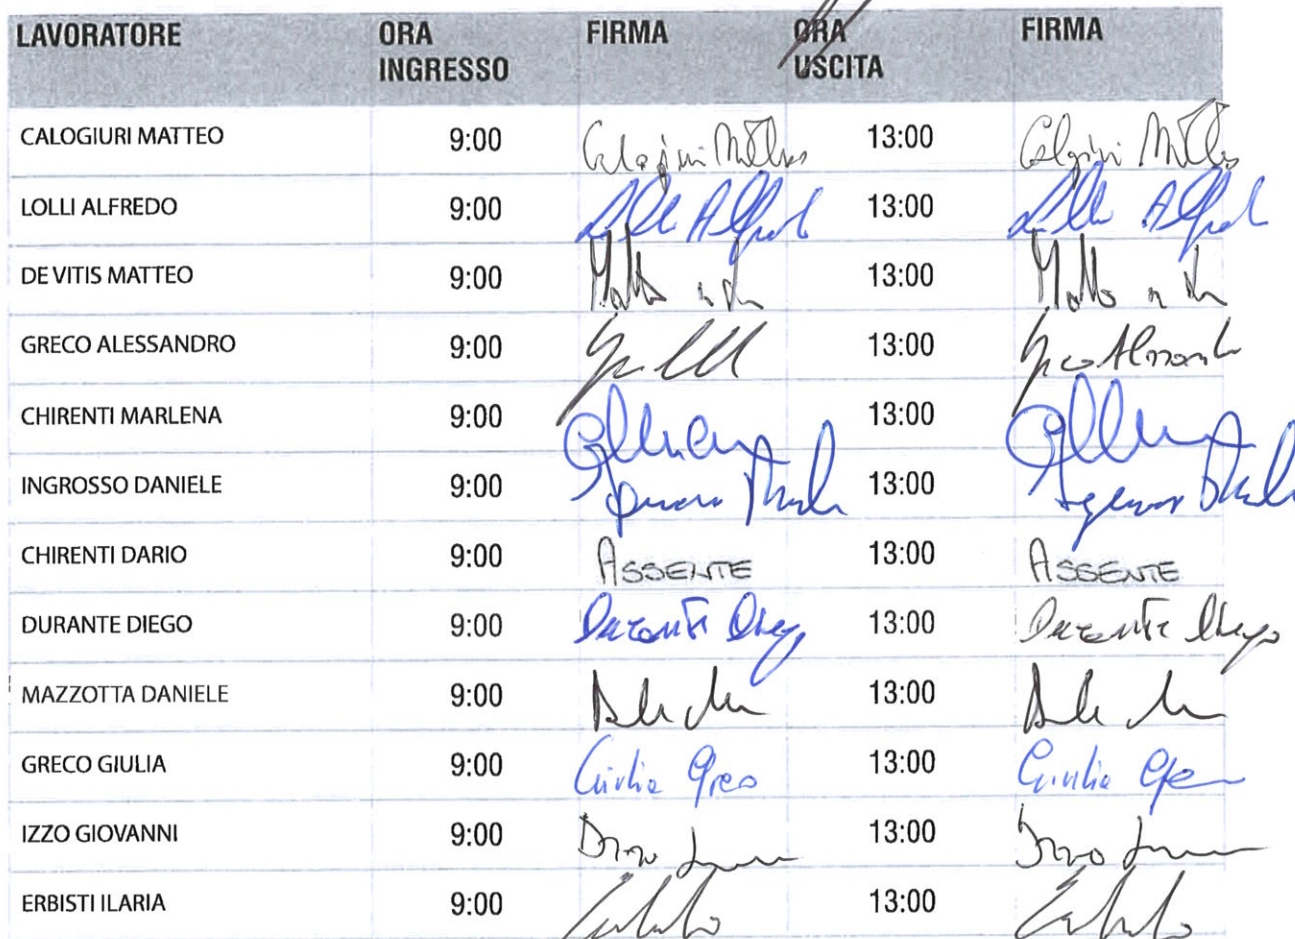 LAVORATORE ORA INGRESSO FIRMA ORA USCITA FIRMA
CALOGIURI MATTEO 9:00 13:00
LOLLI ALFREDO 9:00 Lolli Alfredo 13:00 Lolli Alfredo
DE VITIS MATTEO 9:00 13:00
GRECO ALESSANDRO 9:00 13:00 Greco Alessandro
CHIRENTI MARLENA 9:00 13:00
INGROSSO DANIELE 9:00 13:00
CHIRENTI DARIO 9:00 ASSENTE 13:00 ASSENTE
DURANTE DIEGO 9:00 Durante Diego 13:00 Durante Diego
MAZZOTTA DANIELE 9:00 13:00
GRECO GIULIA 9:00 Giulia Greco 13:00 Giulia Greco
IZZO GIOVANNI 9:00 13:00
ERBISTI ILARIA 9:00 13:00